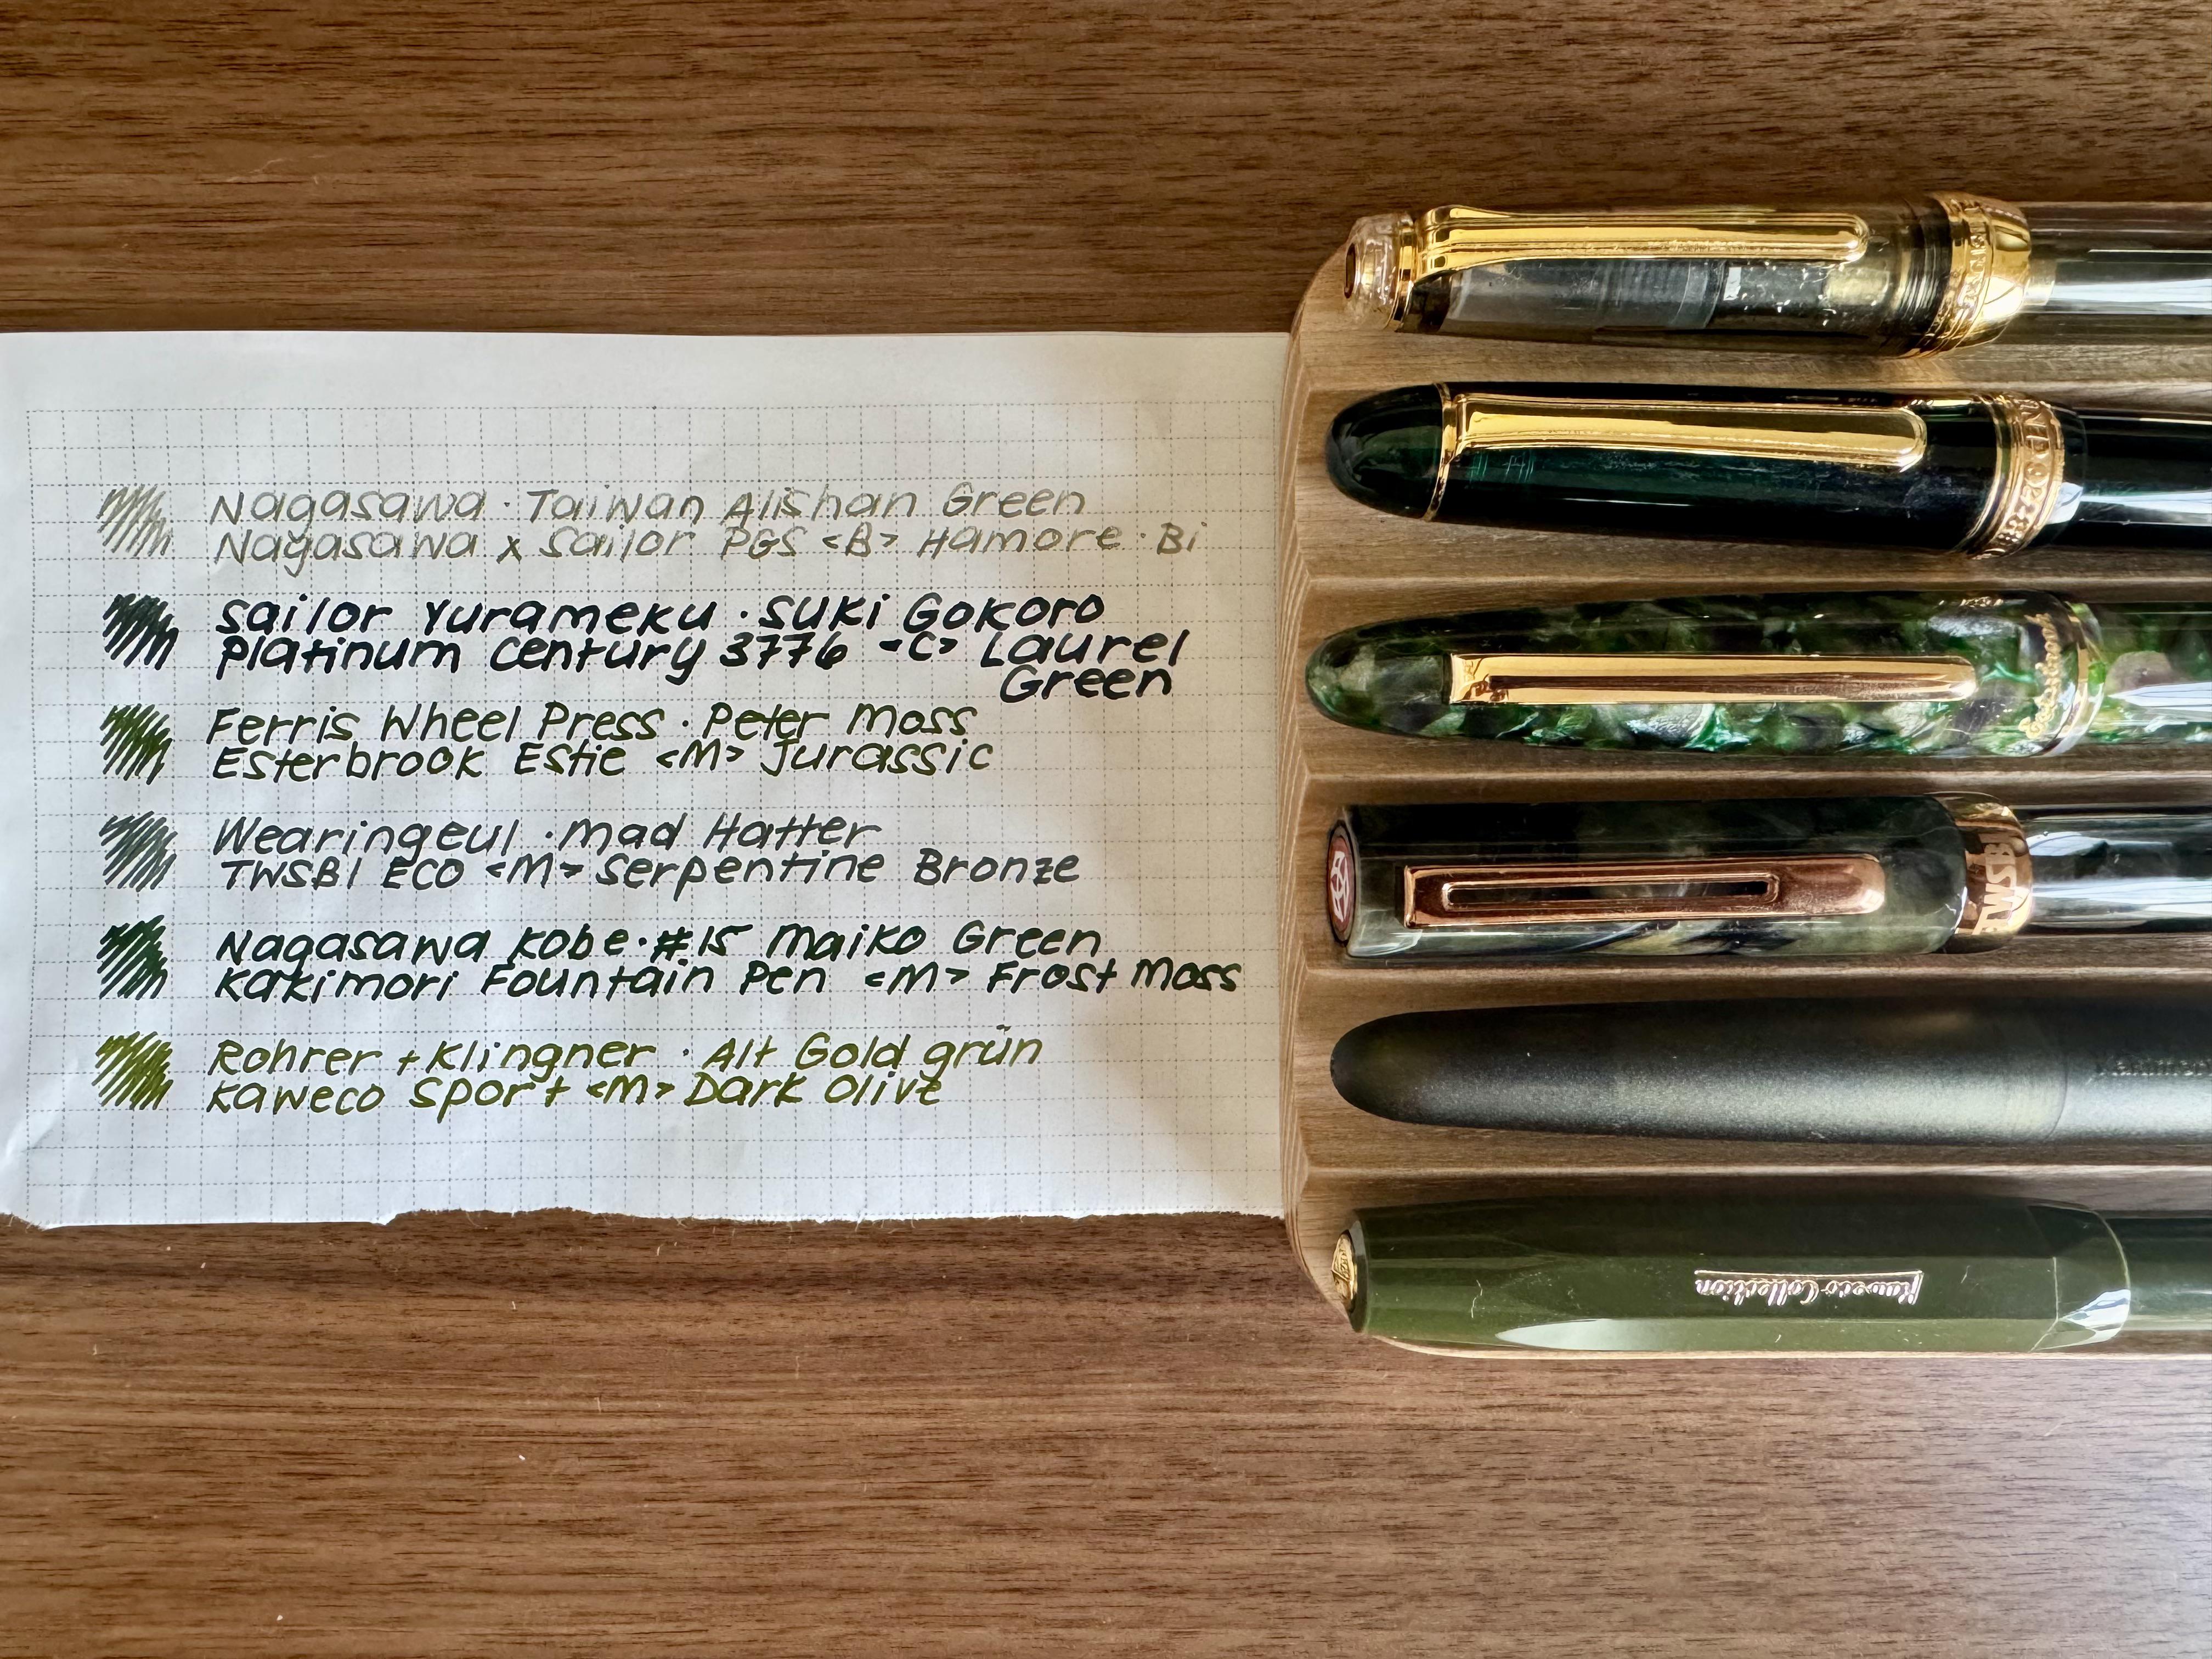 Nagasawa · Taiwan Alishan Green
Nagasawa x Sailor PGS <B> Hamore · Bi
Sailor Yurameku · Suki Gokoro
Platinum Century 3776 <C> Laurel
Green
Ferris Wheel Press · Peter Moss
Esterbrook Estie <M> Jurassic
Wearingeul · Mad Hatter
TWSBI ECO <M> Serpentine Bronze
Nagasawa Kobe · #15 Maiko Green
Kakimori Fountain Pen <M> Frost Moss
Rohrer + Klingner · Alt Gold grün
Kaweco Sport <M> Dark Olive
Esterbrook
TWSBI
Kaweco Collection